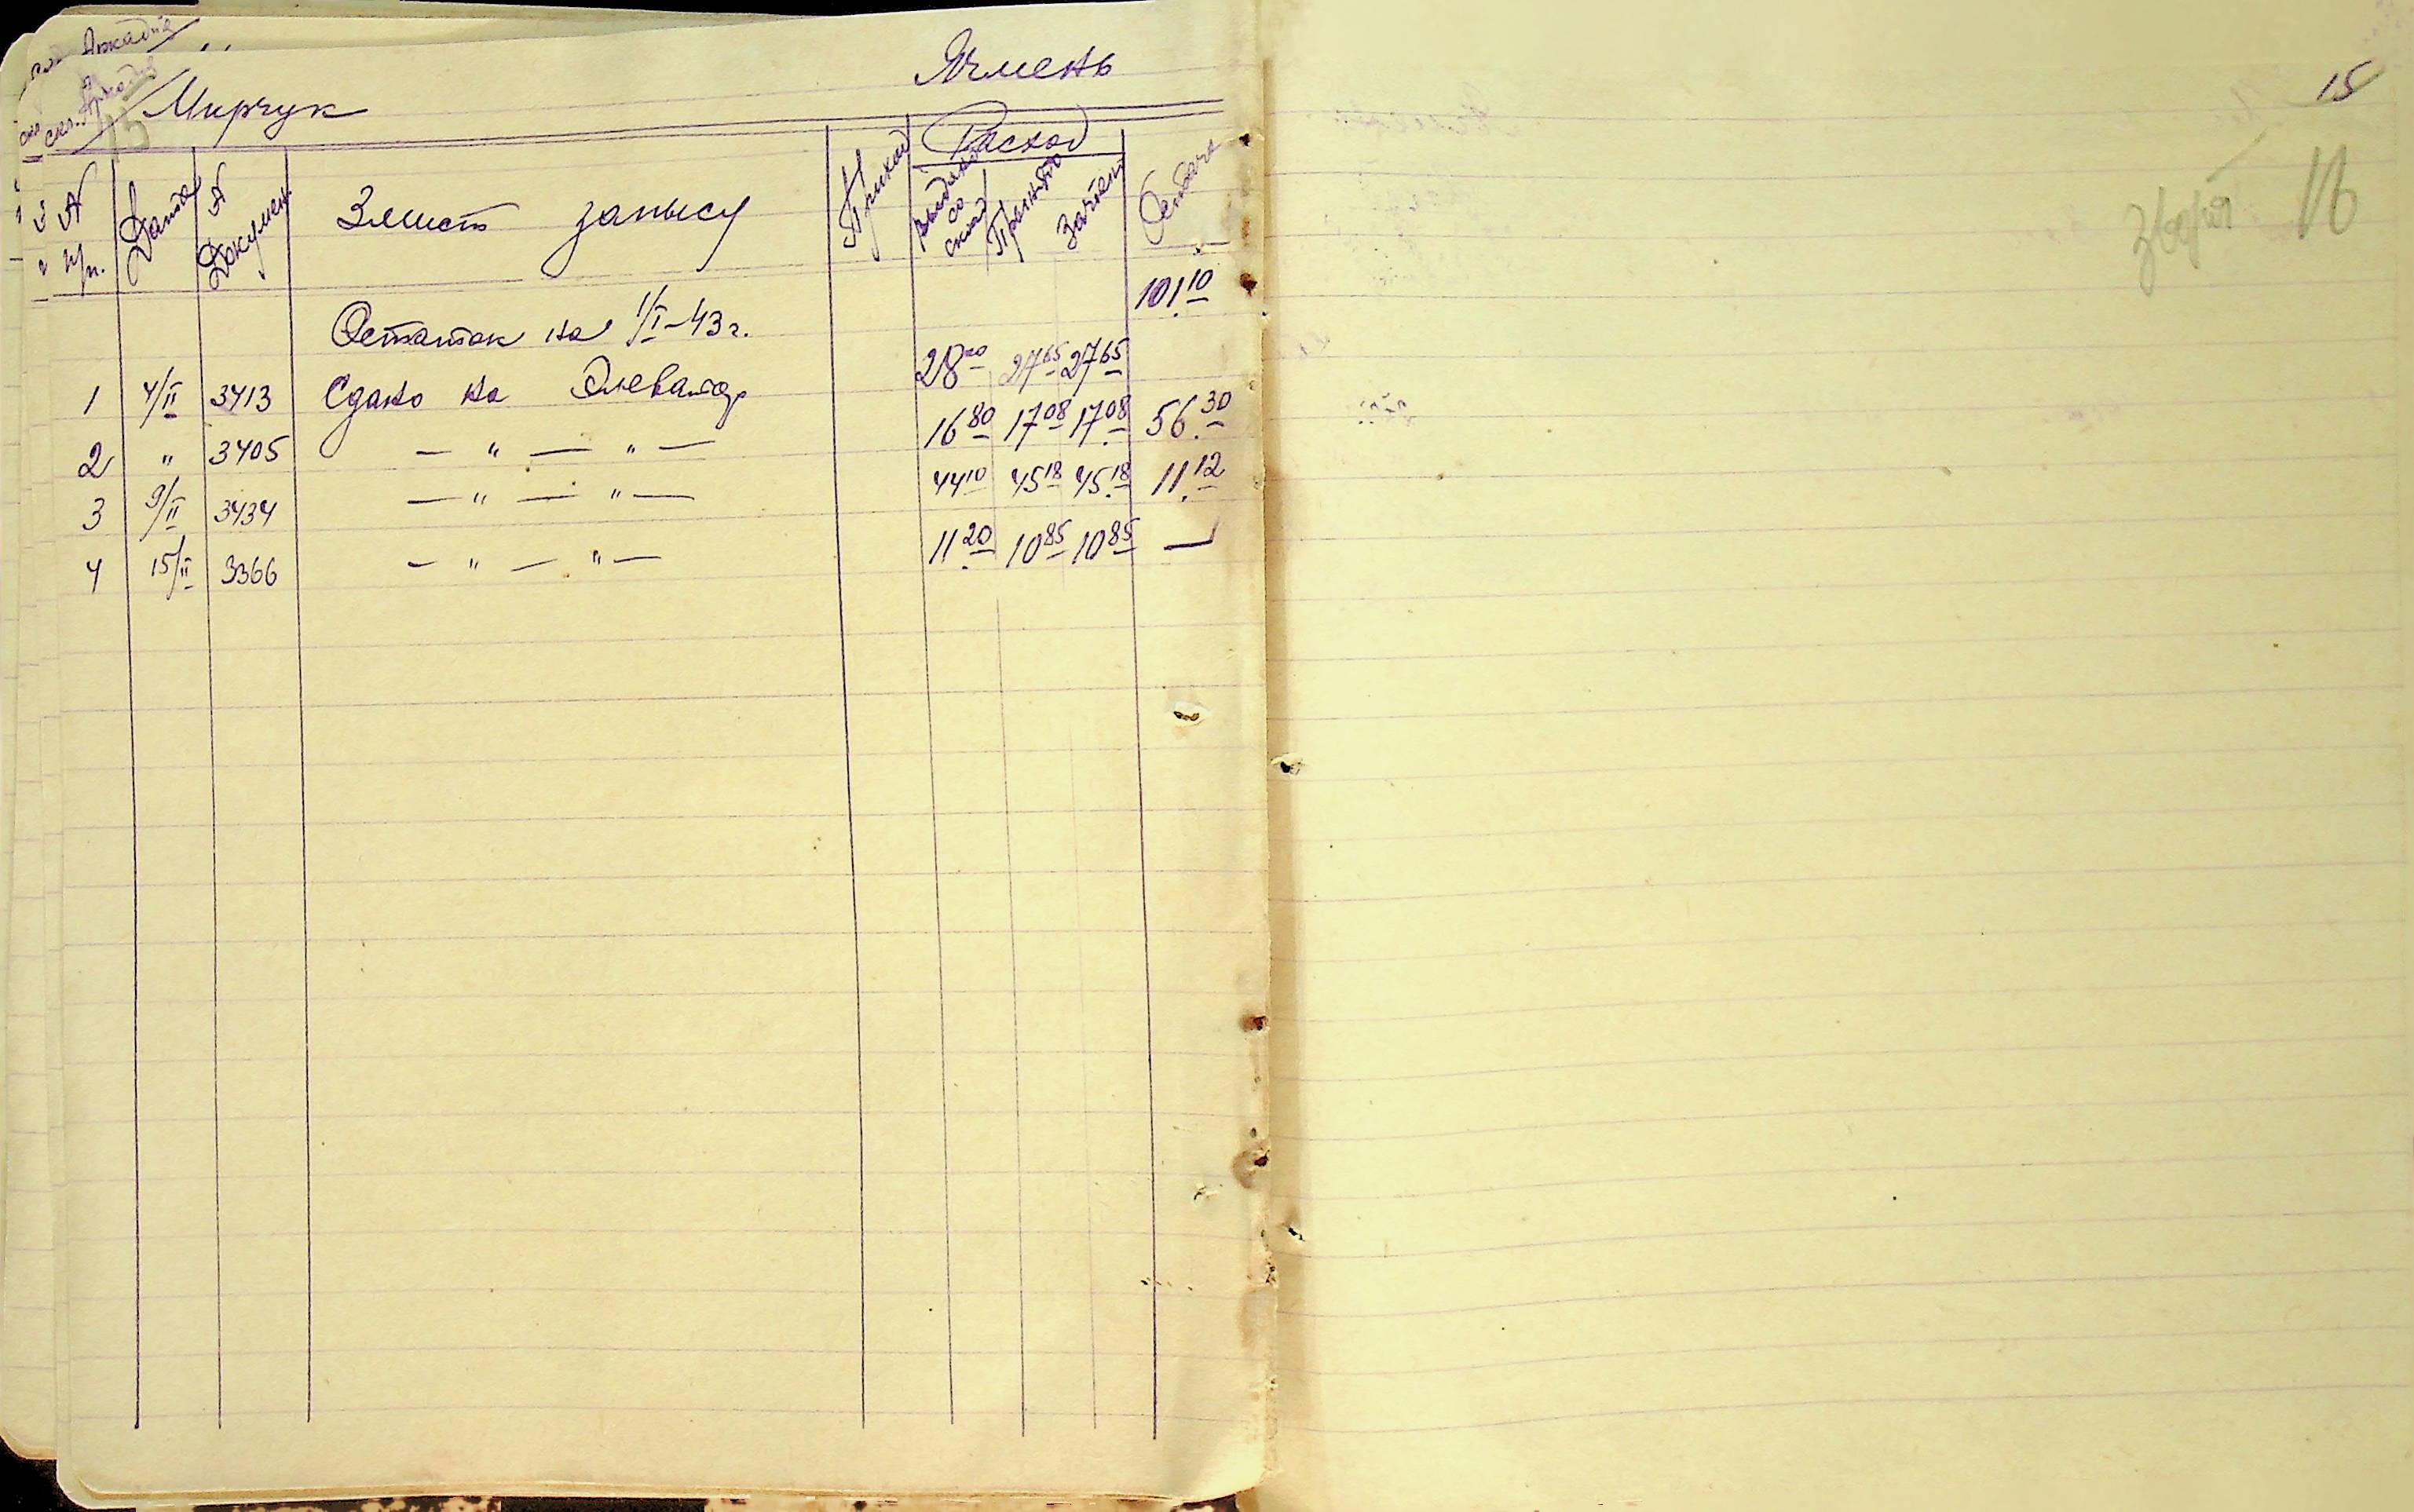 Аркадія
скл. Аркадія
Мирчук
Ячмень
15
N п/п. Дата N Докумен. Змист запысу Приход Расход Остача
Выдано со склад Прынято Зачтено
Остаток на 1/I-43 г. 101.10
1 4/II 3413 Сдано на Элеватор 28 00 27 65 27 65
2 " 3405 — " — " — 16 80 17 08 17.08 56.30
3 9/II 3434 — " — " — 44 10 45 18 45.18 11.12
4 15/II 3366 — " — " — 11.20 10 85 10 85 —
15
зверя 16